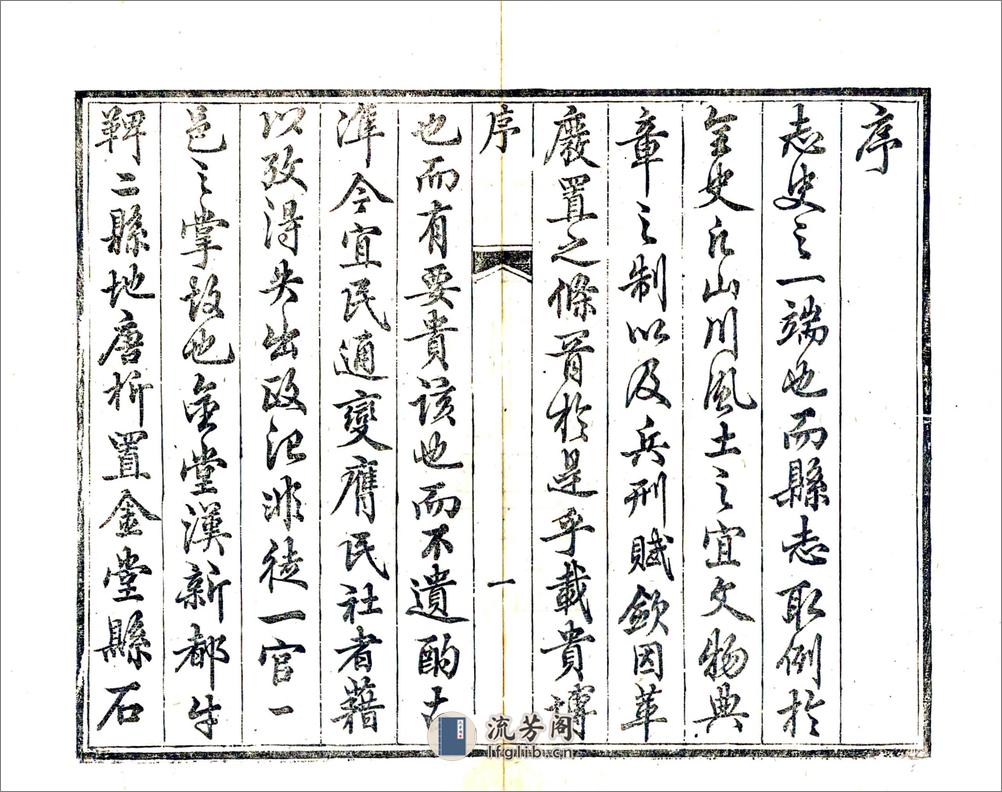 序
志史之一端也而縣志取例於
全史凡山川風土之宜文物典
章之制以及兵刑賦歛因革
廢置之條胥於是乎載貴博
序
一
也而有要貴該也而不遺酌古
準今宜民通變膺民社者藉
以攷得失出政治非徒一官一
邑之掌故也金堂漢新都牛
鞞二縣地唐析置金堂縣石
流芳阁
lfglib.cn